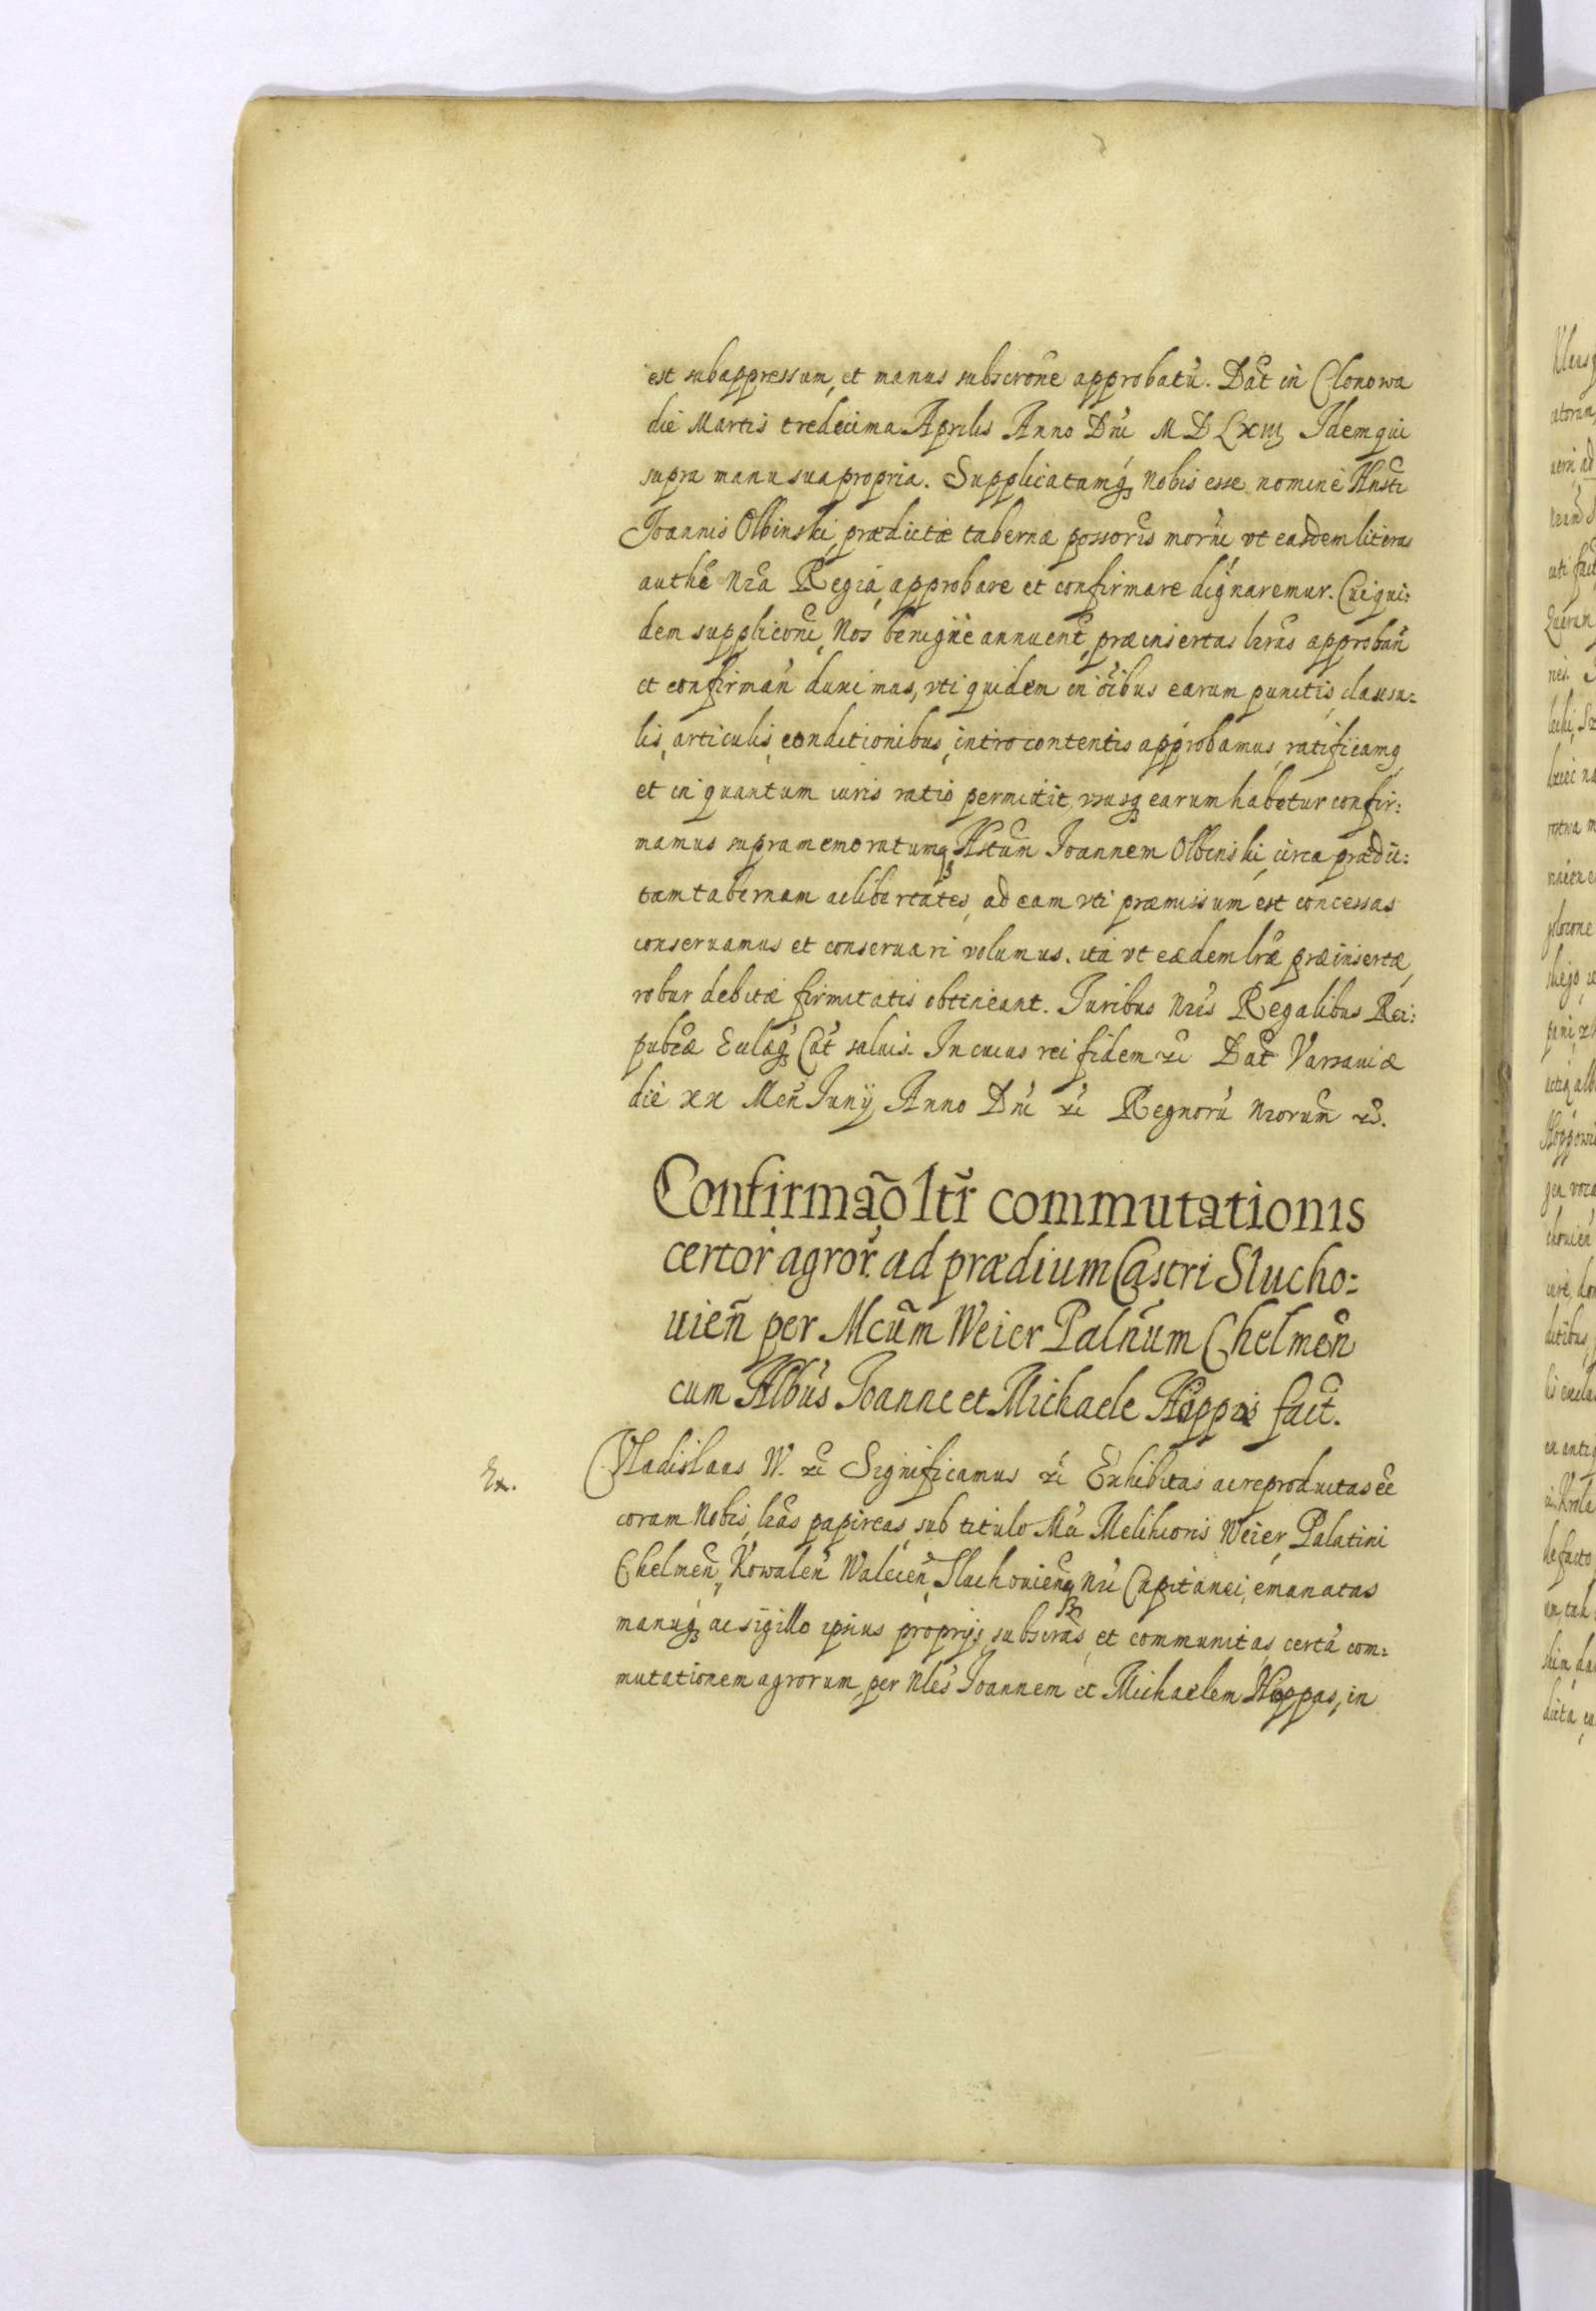 est subappressum, et manus subscrone approbatũ. Dat̃ in Clonowa
die Martis tredecima Aprilis Anno Dni M D Lxiij Idem qui
supra manu sua propria. Supplicatumq́ȝ Nobis esse nomine Hnsti
Joannis Olbinski, prædictæ tabernæ possoris morni vt easdem literas
authẽ Nrã Regiá, approbare et confirmare dignaremur. Cui qui:
dem suppliconi, Nos benignè annuent̃, præinsertas lrãs approbañ
et confirmañ duximus, vti quidem in oĩbus earum punctis, clausu:
lis, articulis, conditionibus, intro contentis approbamus, ratificamq
et in quantum iuris ratio permittit, vsusqȝ earum habetur confir:
mamus supramemoratumqȝ Hstum̃ Joannem Olbinski, circa prædic:
tam tabernam ac libertates, ad eam vti præmissum est concessas
conseruamus et conseruari volumus. ita vt eædem lræ præinsertæ,
robur debitæ firmitatis obtineant. Juribus Nris Regalibus Rei:
publcæ Eclæqȝ Cat̃ saluis. In cuius rei fidem &c Dat̃ Varsauiæ
die xx Meñ Junij Anno Dni &c Regnorũ Nrorum̃ &c.
Confirmaõ ltr̃ commutationis
certor̃ agror̃ ad prædium Castri Slucho:
uieñ per Mcũm Weier Palñum Chelmeñ
cum Nlbus Joanne et Michaele Hoppis fact̃.
Ex.
Vladislaus W. &c Significamus &c Exhibitas ac reproductas eẽ
coram Nobis, lrãs papireas, sub titulo Mci Melchioris Weier, Palatini
Chelmeñ, Kowaleñ Walcieñ, Sluchouieñqȝ Nri Capitanei, emanatas
manuqȝ ac sigillo ipsius proprijs, subscras, et communitas, certã com:
mutationem agrorum, per Nles Joannem et Michaelem Hoppas, in